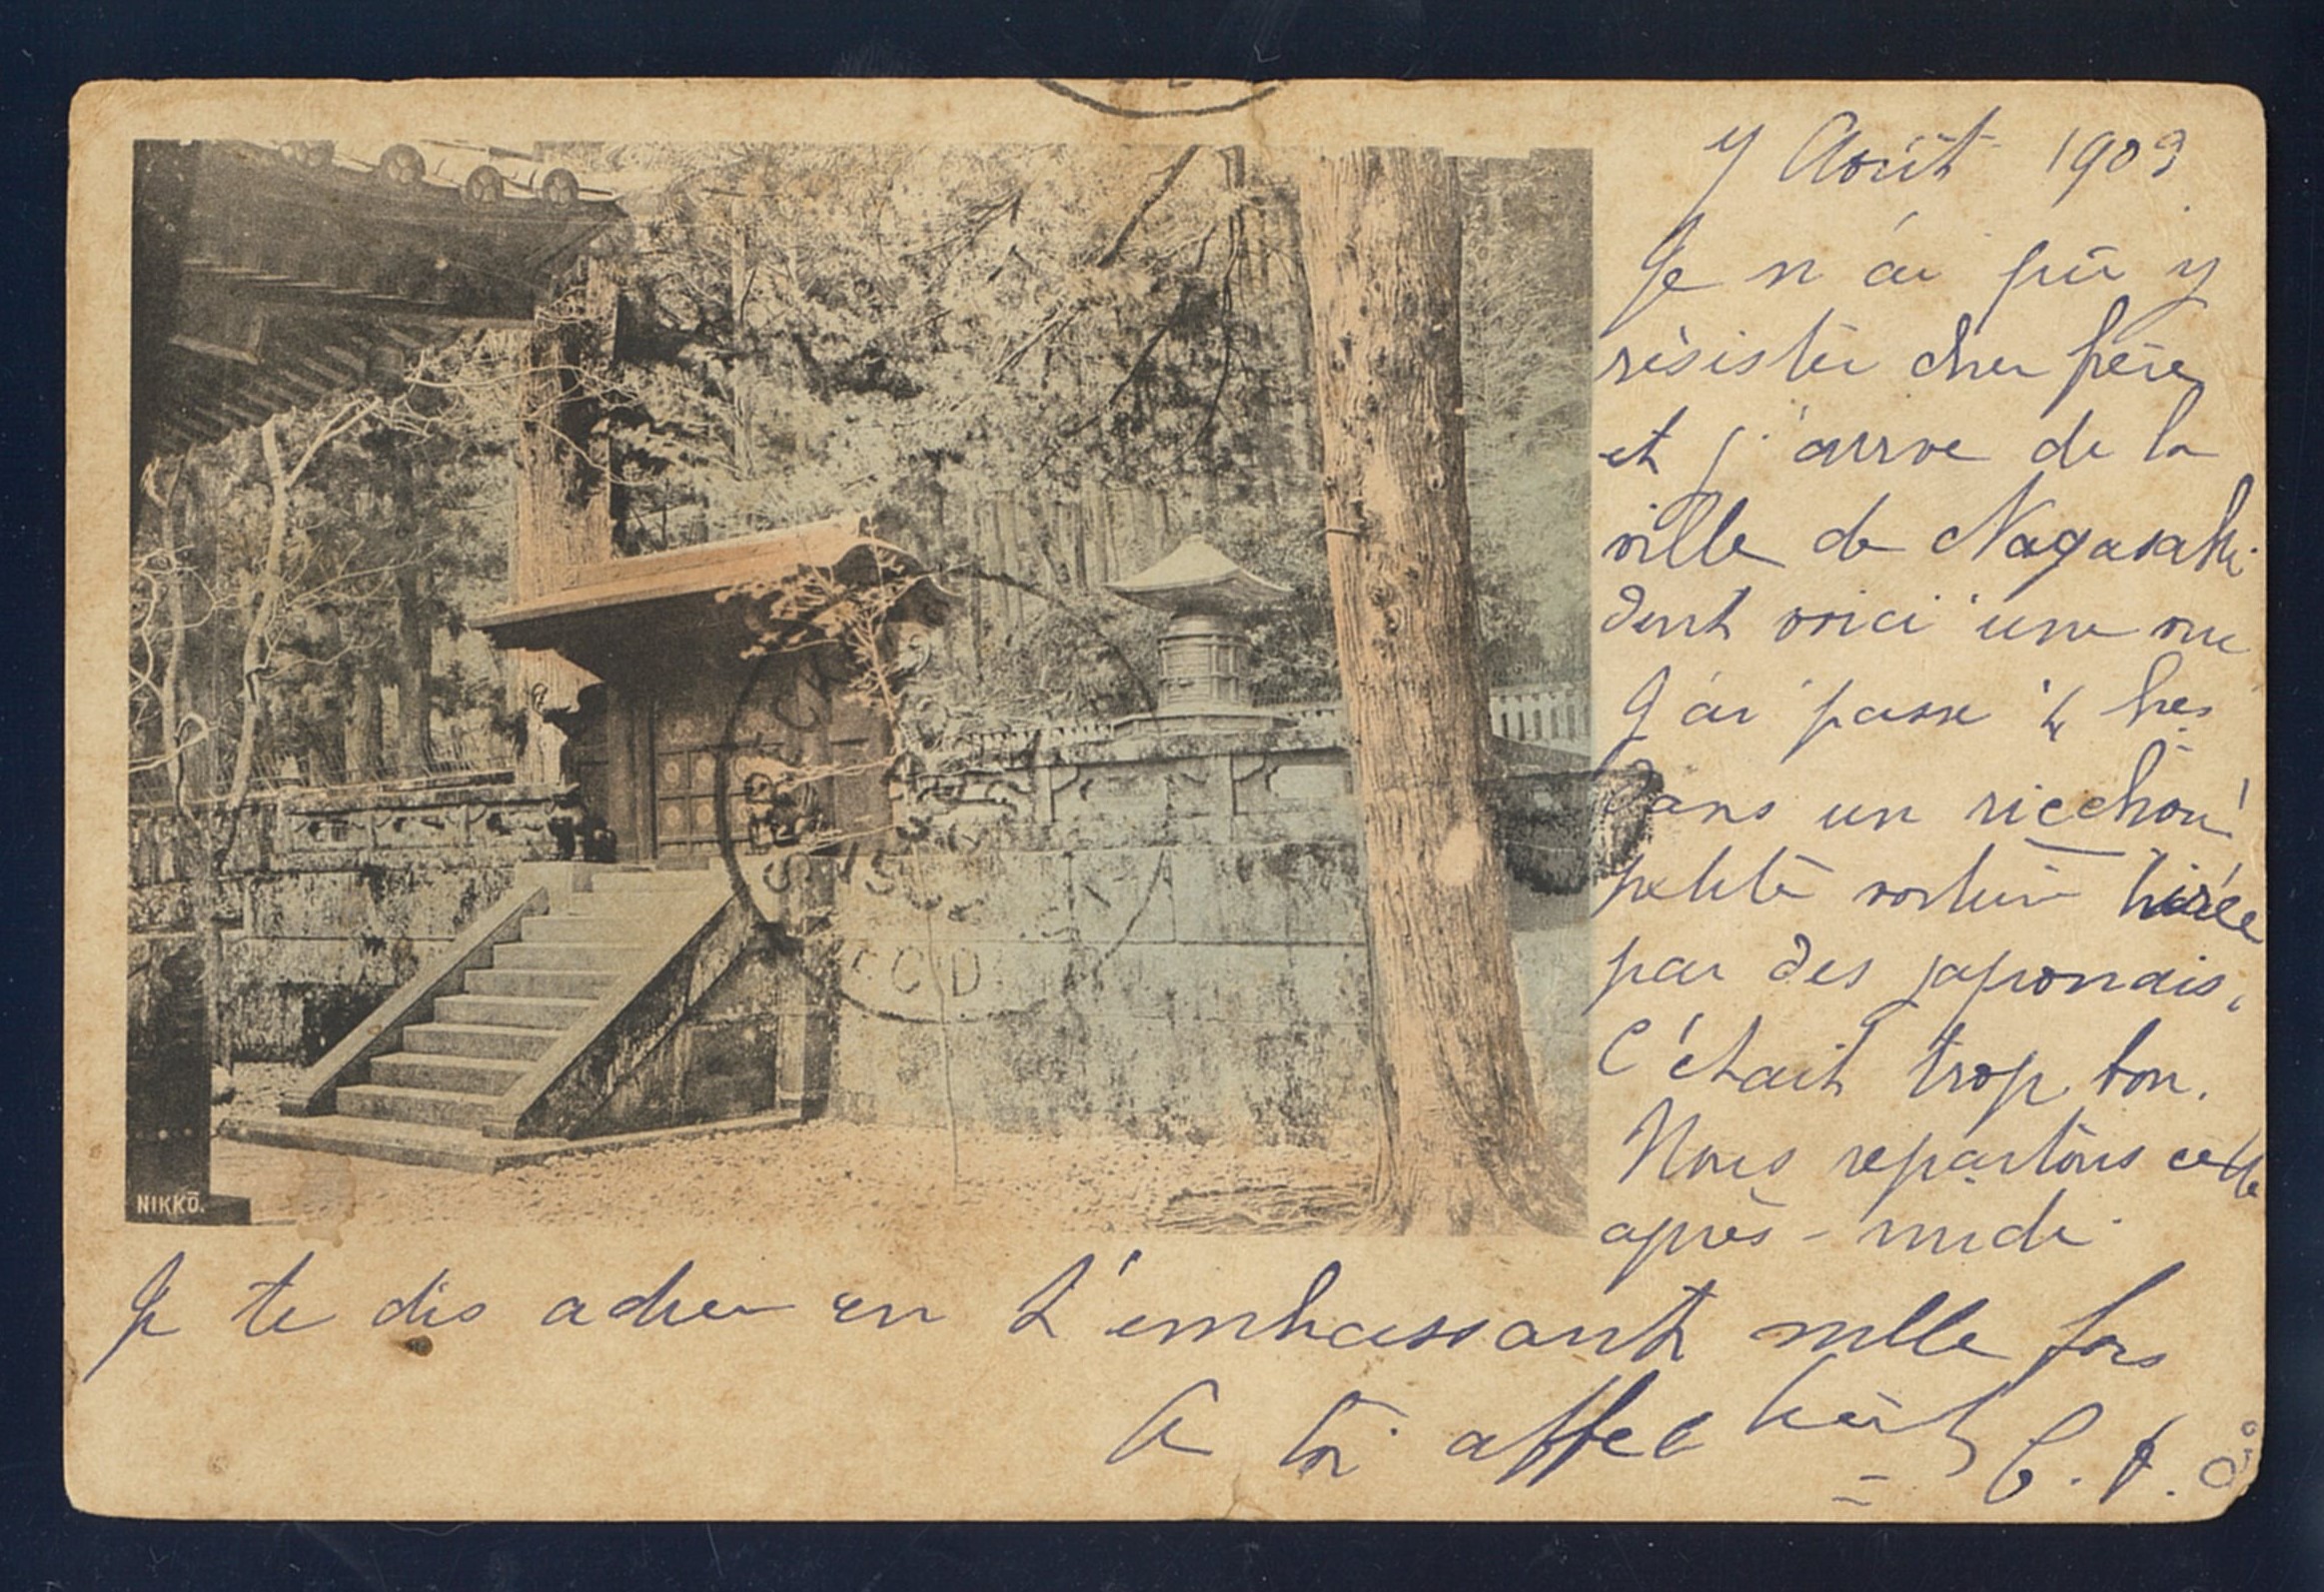 Août 1903
Je n'ai pû y
résister cher frère
et j'arrive de la
ville de Nagasaki
dont voici une vue
J'ai passé 4 hres
dans un ricchou
petite voiture tirée
par des japonais,
C'était trop bon.
Nous repartons cette
après-midi.
NIKKŌ.
Je te dis adieu en t'embrassant mille fois
A toi affect
C.D.